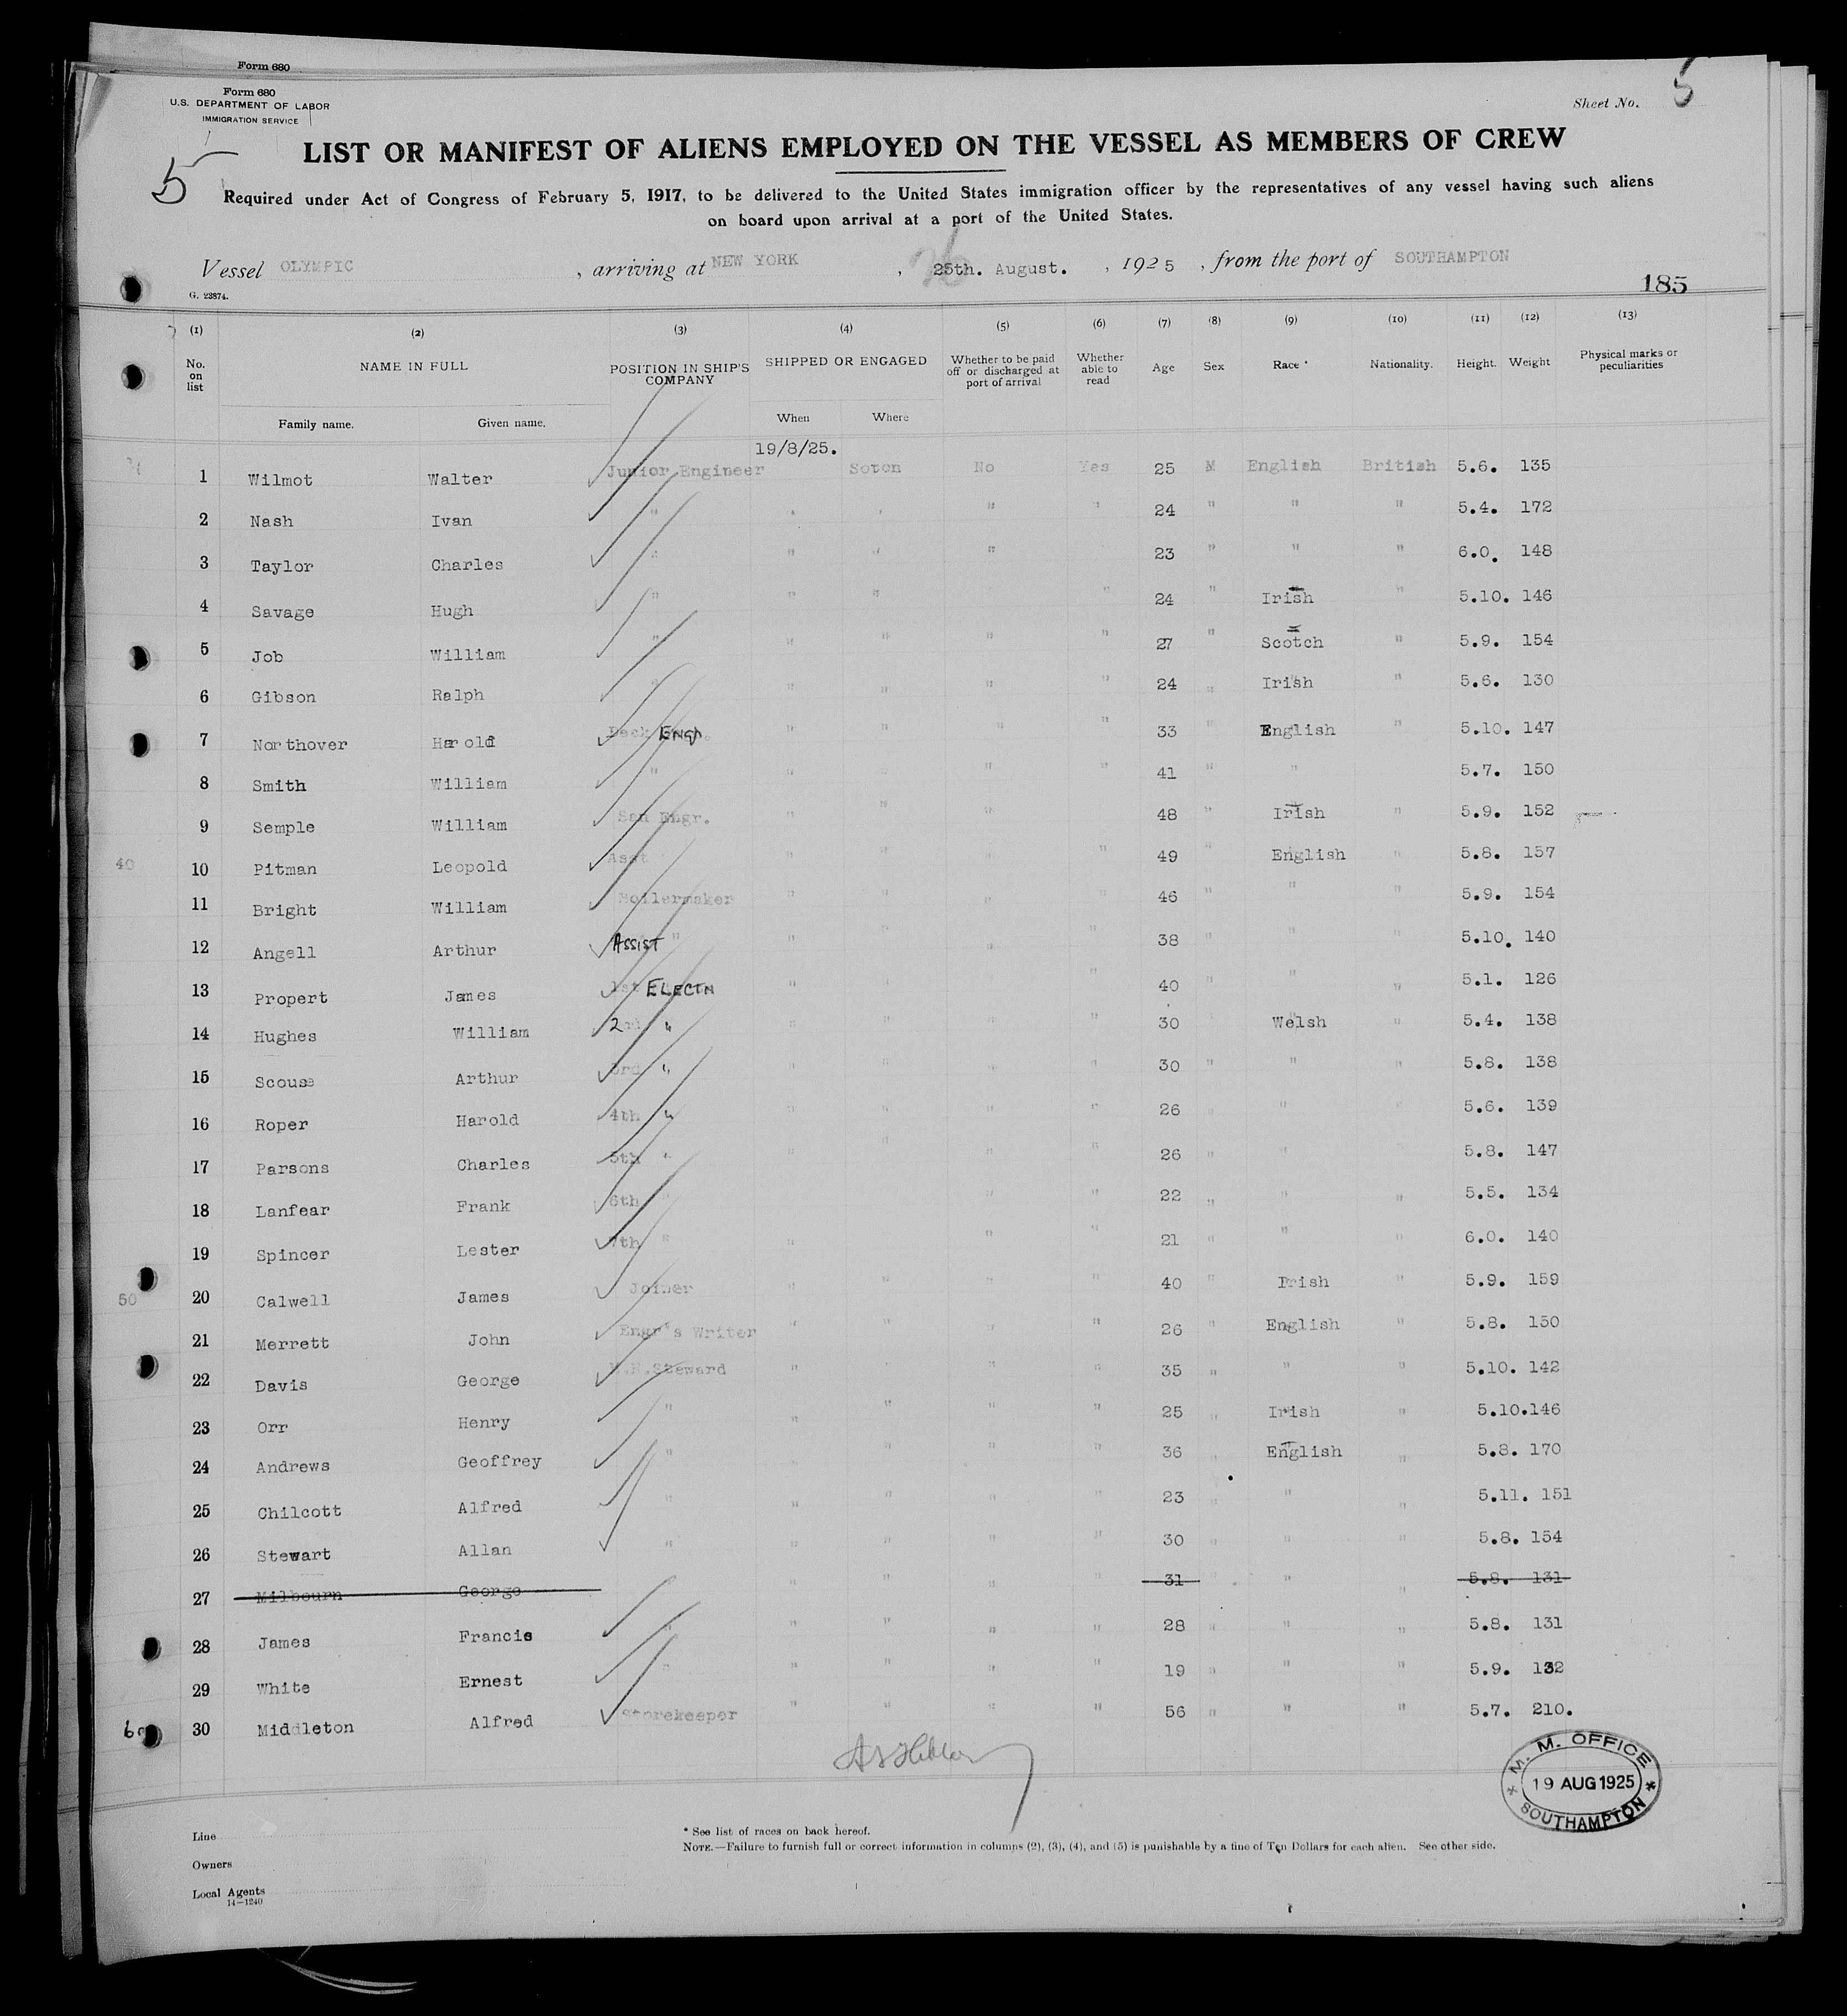 Form 680
Form 680
U.S. DEPARTMENT OF LABOR
IMMIGRATION SERVICE
Sheet No. 5
5
LIST OR MANIFEST OF ALIENS EMPLOYED ON THE VESSEL AS MEMBERS OF CREW
Required under Act of Congress of February 5, 1917, to be delivered to the United States immigration officer by the representatives of any vessel having such aliens
on board upon arrival at a port of the United States.
Vessel OLYMPIC, arriving at NEW YORK, 25th. August. 26, 1925, from the port of SOUTHAMPTON
G. 23874.
185
(1) (2) (3) (4) (5) (6) (7) (8) (9) (10) (11) (12) (13)
No. on list NAME IN FULL POSITION IN SHIP'S COMPANY SHIPPED OR ENGAGED Whether to be paid off or discharged at port of arrival Whether able to read Age Sex Race * Nationality. Height. Weight Physical marks or peculiarities
Family name. Given name. When Where
19/8/25.
1 Wilmot Walter Junior Engineer Soton No Yes 25 M English British 5.6. 135
2 Nash Ivan " " " " " 24 " " " 5.4. 172
3 Taylor Charles " " " " 23 " " " 6.0. 148
4 Savage Hugh " " " " 24 " Irish " 5.10. 146
5 Job William " " " " " 27 " Scotch " 5.9. 154
6 Gibson Ralph " " " " " 24 " Irish " 5.6. 130
7 Northover Harold Deck Engr. " " " " 33 " English " 5.10. 147
8 Smith William " " " " 41 " " 5.7. 150
9 Semple William San Engr. " " " 48 " Irish " 5.9. 152
40
10 Pitman Leopold Asst " " " " 49 " English " 5.8. 157
11 Bright William Boilermaker " " " " 46 " " " 5.9. 154
12 Angell Arthur Assist " " " " " 38 " " " 5.10. 140
13 Propert James 1st ELECTN " " " 40 " " 5.1. 126
14 Hughes William 2nd " " " " " 30 " Welsh " 5.4. 138
15 Scouse Arthur 3rd " " " " " 30 " " " 5.8. 138
16 Roper Harold 4th " " " " " 26 " " 5.6. 139
17 Parsons Charles 5th " " " " " 26 " " " 5.8. 147
18 Lanfear Frank 6th " " " 22 " " " 5.5. 134
19 Spincer Lester 7th " " " " 21 " " " 6.0. 140
50
20 Calwell James Joiner " " " " 40 " Irish " 5.9. 159
21 Merrett John Engr's Writer " " " " 26 " English " 5.8. 150
22 Davis George Steward " " " " 35 " " " 5.10. 142
23 Orr Henry " " " " " 25 " Irish " 5.10. 146
24 Andrews Geoffrey " " " " 36 " English " 5.8. 170
25 Chilcott Alfred " " " " " 23 " " " 5.11. 151
26 Stewart Allan " " " " " 30 " " " 5.8. 154
27 Milbourn George " " " " " 31 " " " 5.8. 131
28 James Francis " " " " " 28 " " " 5.8. 131
29 White Ernest " " " " " 19 " " " 5.9. 132
60
30 Middleton Alfred Storekeeper " " " " 56 " " " 5.7. 210.
M. M. OFFICE
19 AUG 1925
SOUTHAMPTON
Line
Owners
Local Agents
14—1240
* See list of races on back hereof.
NOTE.—Failure to furnish full or correct information in columns (2), (3), (4), and (5) is punishable by a fine of Ten Dollars for each alien. See other side.